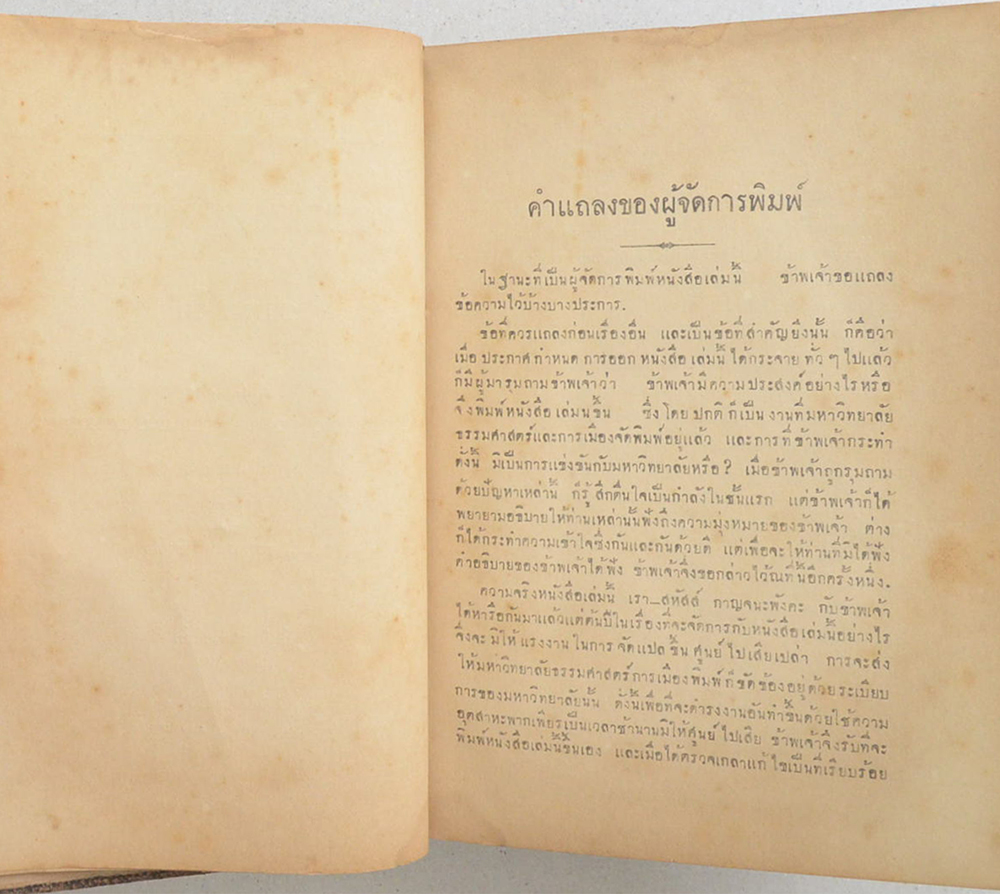 คำแถลงของผู้จัดการพิมพ์
ในฐานะที่เป็นผู้จัดการพิมพ์หนังสือเล่มนี้ ข้าพเจ้าขอแถลง
ข้อความไว้บ้างบางประการ.
ข้อที่ควรแถลงก่อนเรื่องอื่น และเป็นข้อที่สำคัญยิ่งนั้น ก็คือว่า
เมื่อประกาศกำหนดการออกหนังสือเล่มนี้ได้กระจายทั่วๆไปแล้ว
ก็มีผู้มารุมถามข้าพเจ้าว่า ข้าพเจ้ามีความประสงค์อย่างไรหรือ
จึงพิมพ์หนังสือเล่มนี้ขึ้น ซึ่งโดยปกติก็เป็นงานที่มหาวิทยาลัย
ธรรมศาสตร์และการเมืองจัดพิมพ์อยู่แล้ว และการที่ข้าพเจ้ากระทำ
ดั่งนี้ มิเป็นการแข่งขันกับมหาวิทยาลัยหรือ? เมื่อข้าพเจ้าถูกรุมถาม
ด้วยปัญหาเหล่านี้ ก็รู้สึกตื่นใจเป็นกำลังในชั้นแรก แต่ข้าพเจ้าก็ได้
พยายามอธิบายให้ท่านเหล่านั้นฟังถึงความมุ่งหมายของข้าพเจ้า ต่าง
ก็ได้กระทำความเข้าใจซึ่งกันและกันด้วยดี แต่เพื่อจะให้ท่านที่มิได้ฟัง
คำอธิบายของข้าพเจ้าได้ฟัง ข้าพเจ้าจึงขอกล่าวไว้ณที่นี้อีกครั้งหนึ่ง.
ความจริงหนังสือเล่มนี้ เรา—สหัสส์ กาญจนะพังคะ กับข้าพเจ้า
ได้หารือกันมาแล้วแต่ต้นปีในเรื่องที่จะจัดการกับหนังสือเล่มนี้อย่างไร
จึงจะมิให้แรงงานในการจัดแปลขึ้นศูนย์ไปเสียเปล่า การจะส่ง
ให้มหาวิทยาลัยธรรมศาสตร์การเมืองพิมพ์ก็ขัดข้องอยู่ด้วยระเบียบ
การของมหาวิทยาลัยนั้น ดั่งนี้เพื่อที่จะดำรงงานอันทำขึ้นด้วยใช้ความ
อุตสาหะพากเพียรเป็นเวลาช้านานมิให้ศูนย์ไปเสีย ข้าพเจ้าจึงรับที่จะ
พิมพ์หนังสือเล่มนี้ขึ้นเอง และเมื่อได้ตรวจเกลาแก้ไขเป็นที่เรียบร้อย